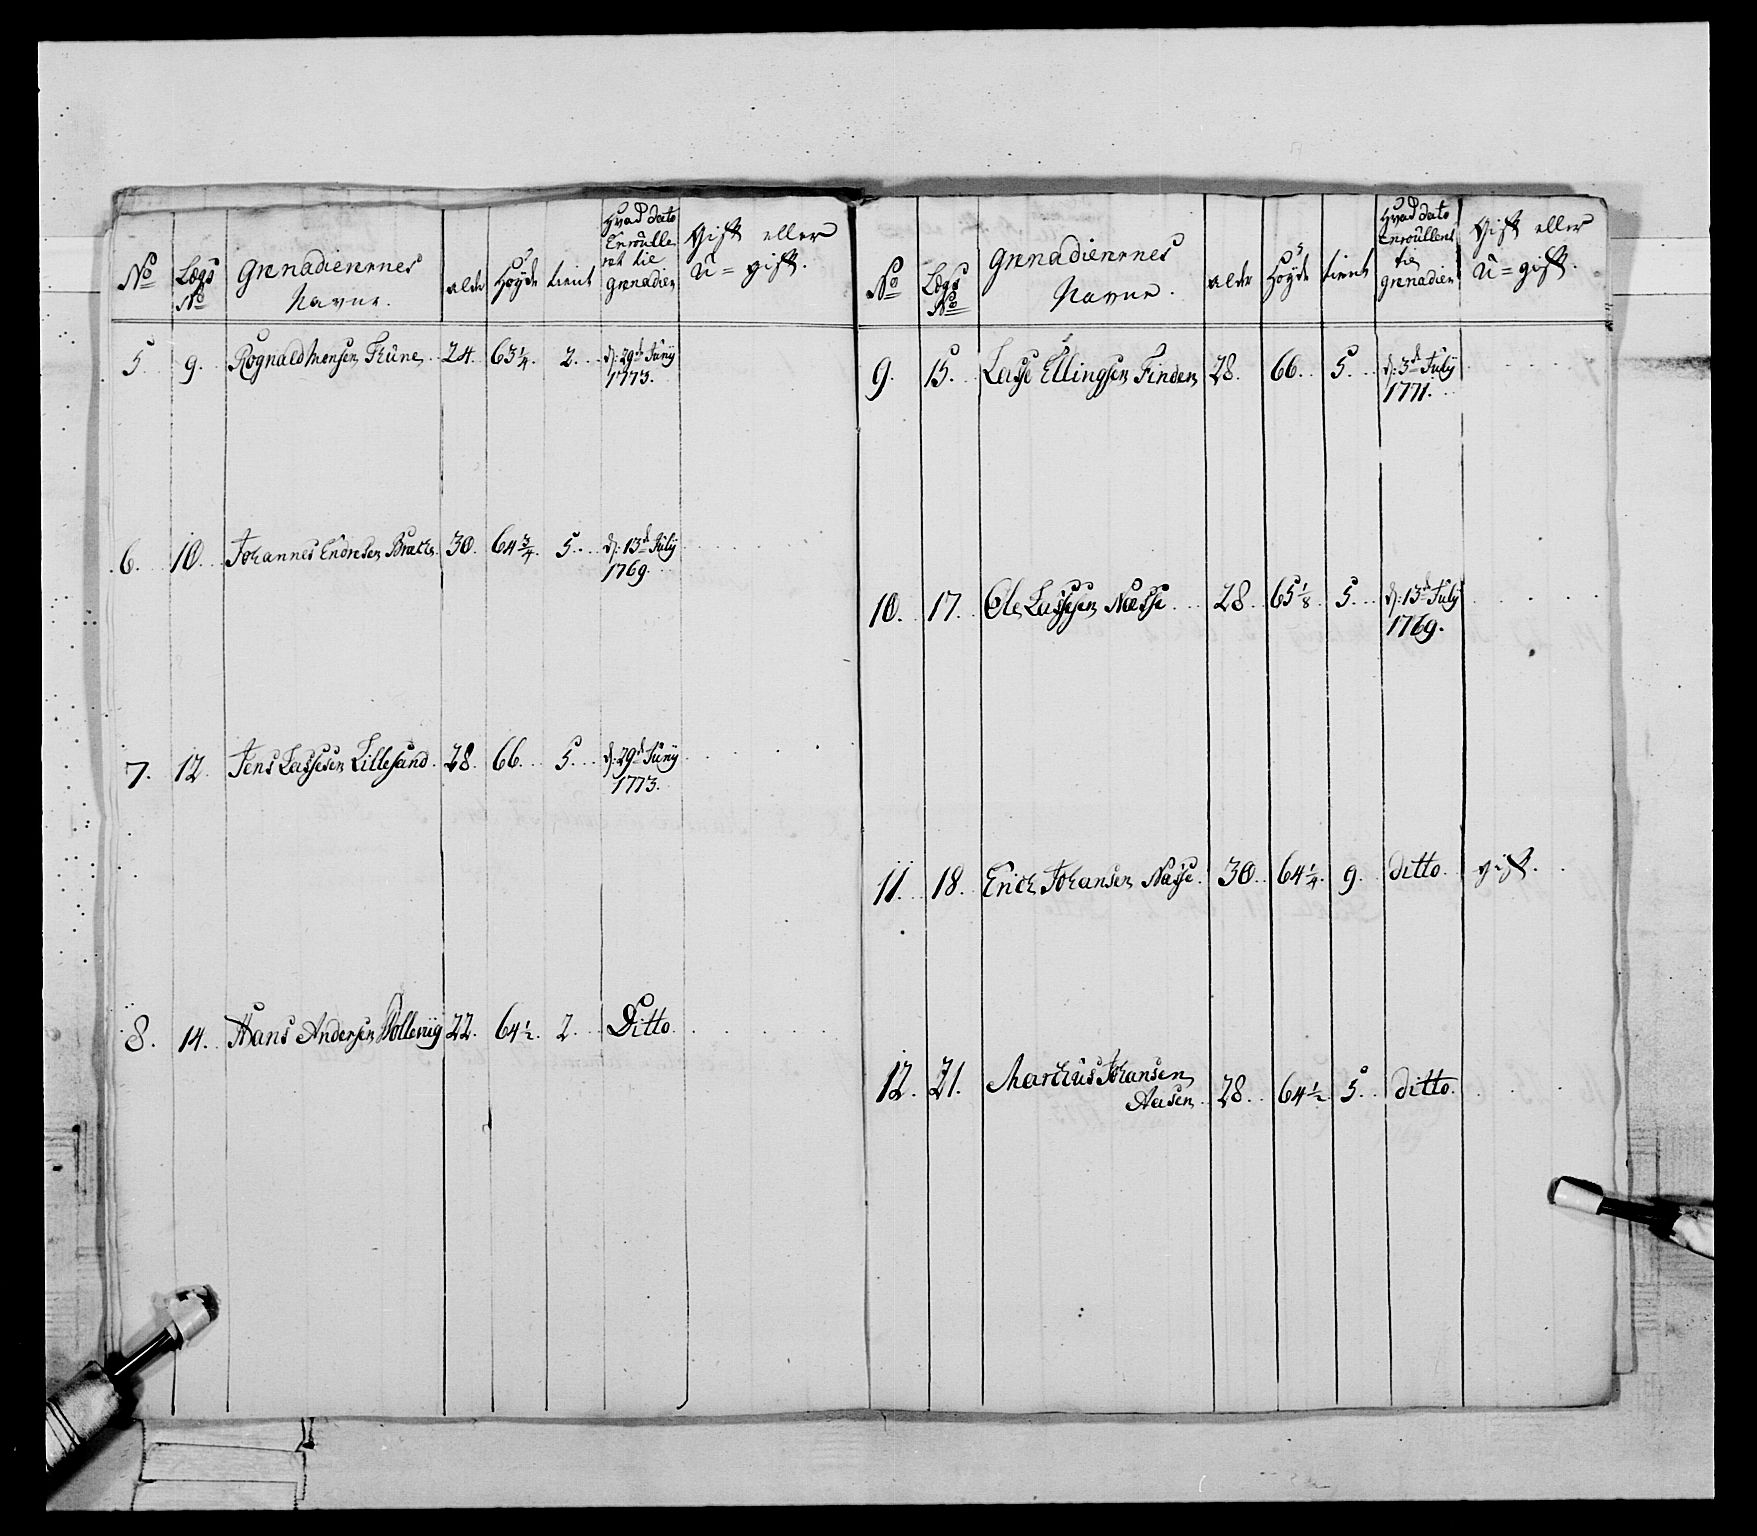 No
Lægs No
Grenadierernes Navne.
alder
Høyde
tient
Hvad dato Enroulleret til Grenadier
Gift eller U=gift.
5. 9. Rognald Monsen 24. 63 1/4. 2. d: 29de Juny 1773.
6. 10. Johannes Endresen 30. 64 3/4. 5. d: 13de July 1769.
7. 12. Jens Lassesen Lillesand. 28. 66. 5. d: 29de Juny 1773.
8. 14. Hans Andersen Bollevig 22. 64 1/2. 2. Ditto.
No
Lægs No
Grenadierernes Navne.
alder
Høyde
tient
Hvad dato Enroulleret til Grenadier
Gift eller U=gift.
9. 15. Lasse Ellingsen Finden 28. 66. 5. d: 3de July 1771.
10. 17. Ole Lassesen Næsse 28. 65 1/8. 5. d: 13de July 1769.
11. 18. Erich Johansen Næsse. 30. 64 1/4. 9. ditto. gift.
12. 21. Marthus Johansen
Aasen 28. 64 1/2. 5. ditto.